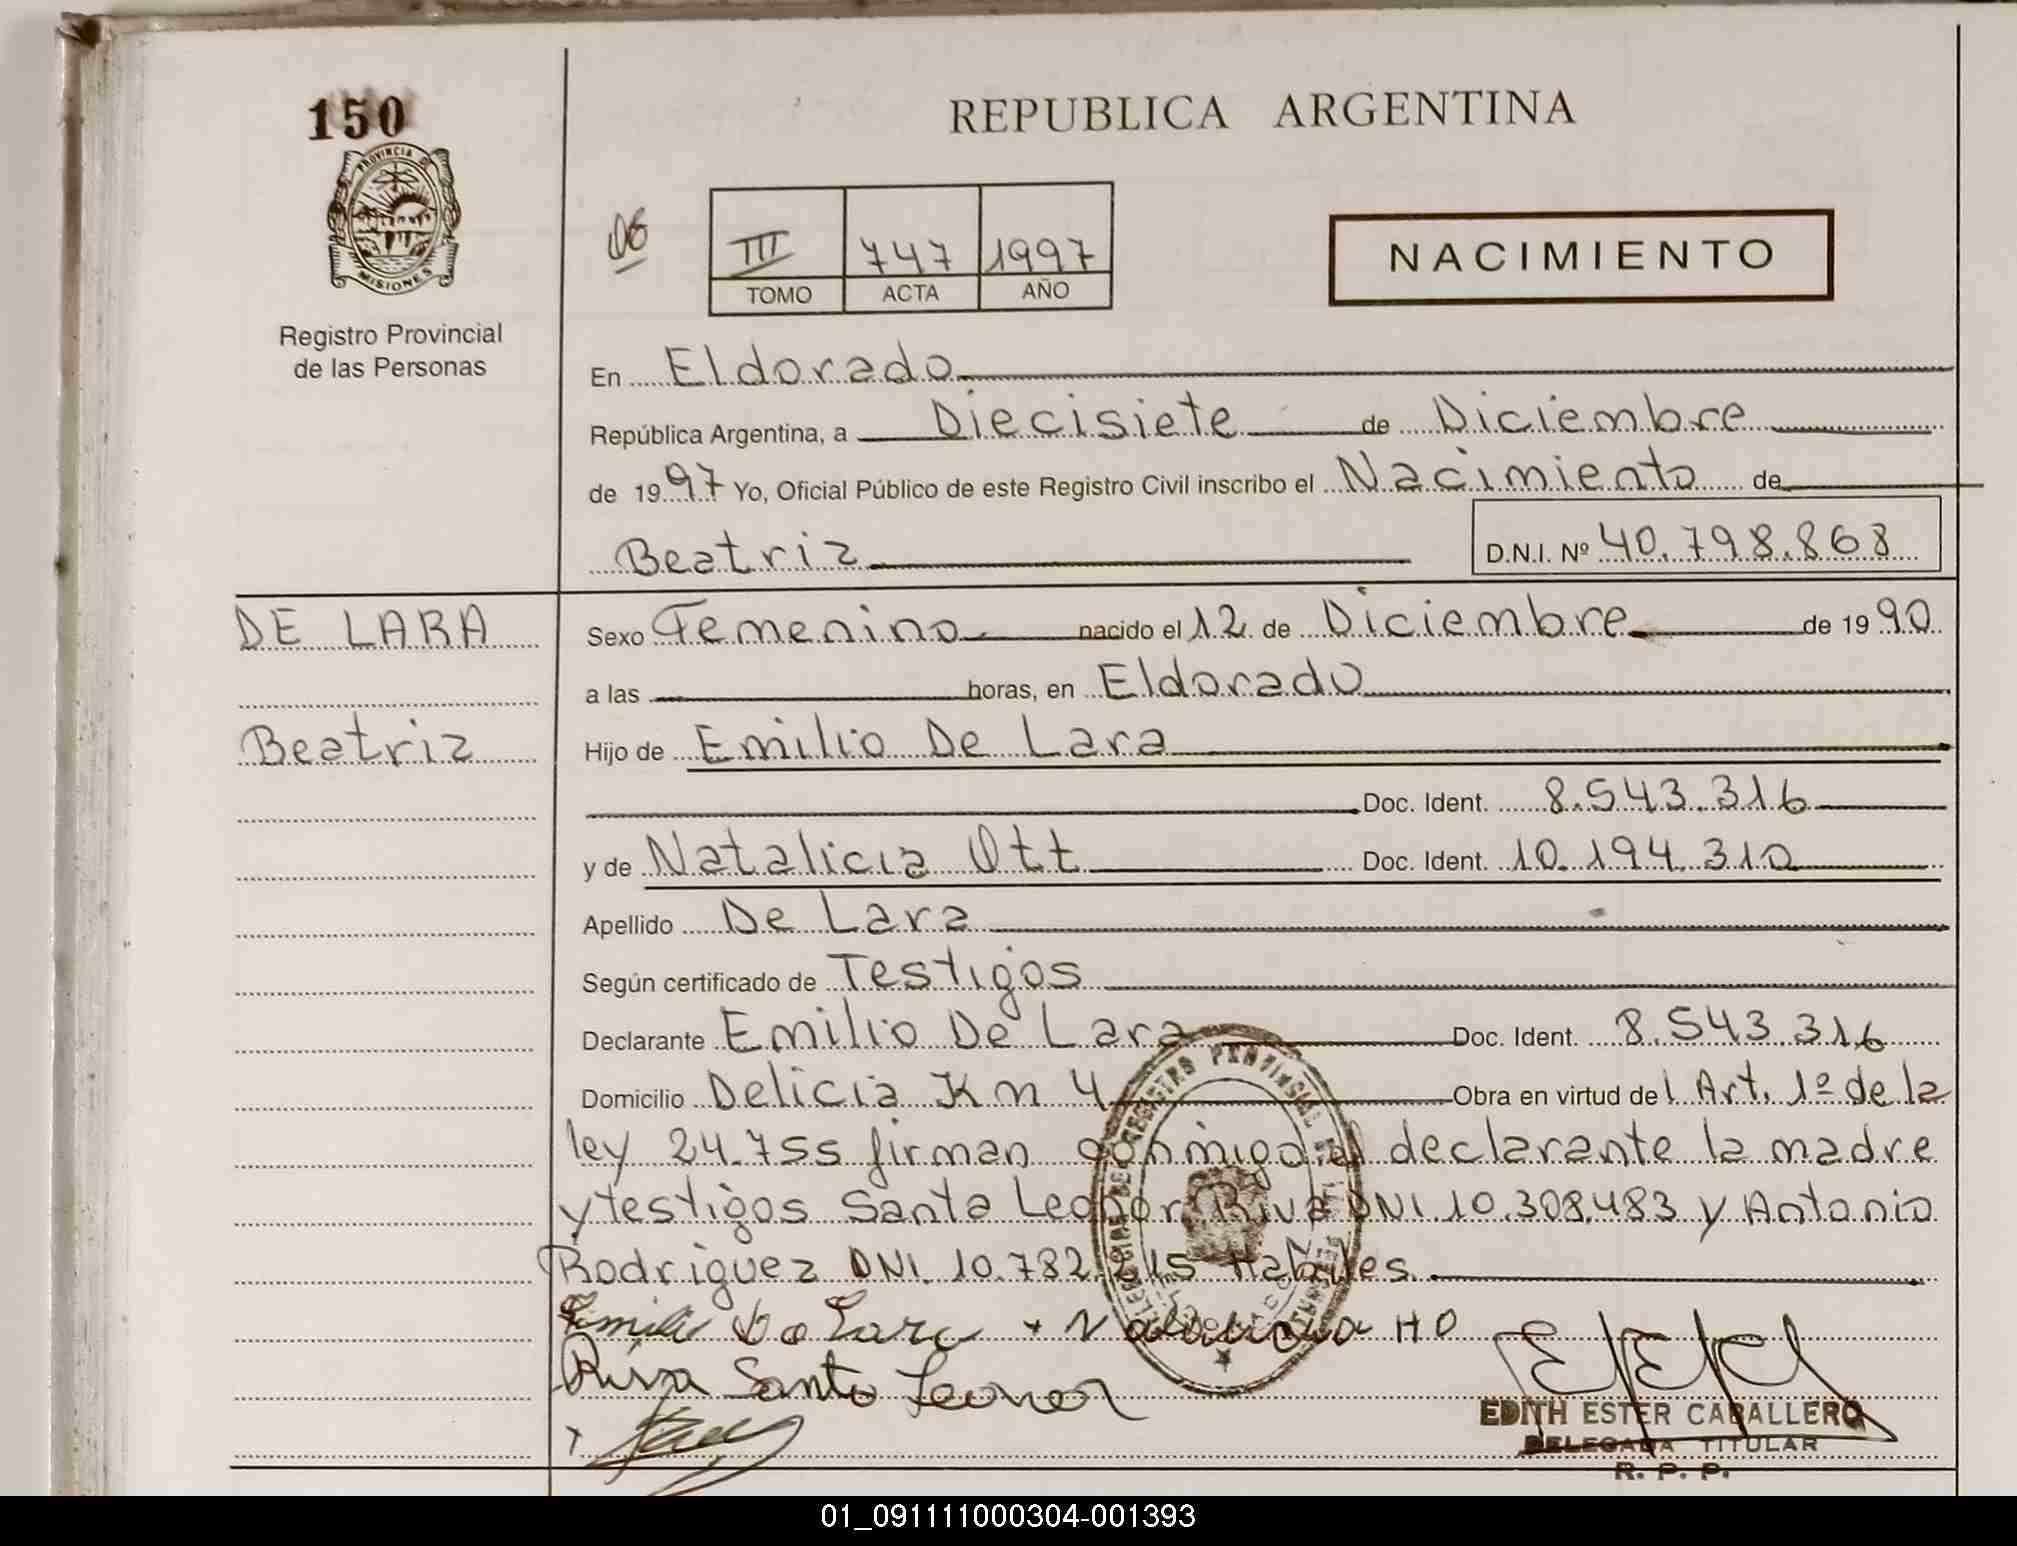 150
PROVINCIA DE
MISIONES
Registro Provincial
de las Personas
REPUBLICA ARGENTINA
06
III 747 1997
TOMO ACTA AÑO
NACIMIENTO
En Eldorado
República Argentina, a Diecisiete de Diciembre
de 1997 Yo, Oficial Público de este Registro Civil inscribo el Nacimiento de
Beatriz D.N.I. Nº 40.798.868
DE LARA
Beatriz
Sexo Femenino nacido el 12 de Diciembre de 1990
a las horas, en Eldorado
Hijo de Emilio De Lara
Doc. Ident. 8.543.316
y de Natalicia Ott Doc. Ident. 10.194.310
Apellido De Lara
Según certificado de Testigos
Declarante Emilio De Lara Doc. Ident. 8.543.316
Domicilio Delicia Km 4 Obra en virtud del Art. 1º de la
ley 24.755 firman conmigo el declarante la madre
y testigos Santa Leonor Riva DNI.10.308.483 y Antonio
Rodriguez DNI. 10.782.215 Habiles
De Lara
Riva Santa Leonor
EDITH ESTER CABALLERO
DELEGADA TITULAR
R. P. P.
01_091111000304-001393